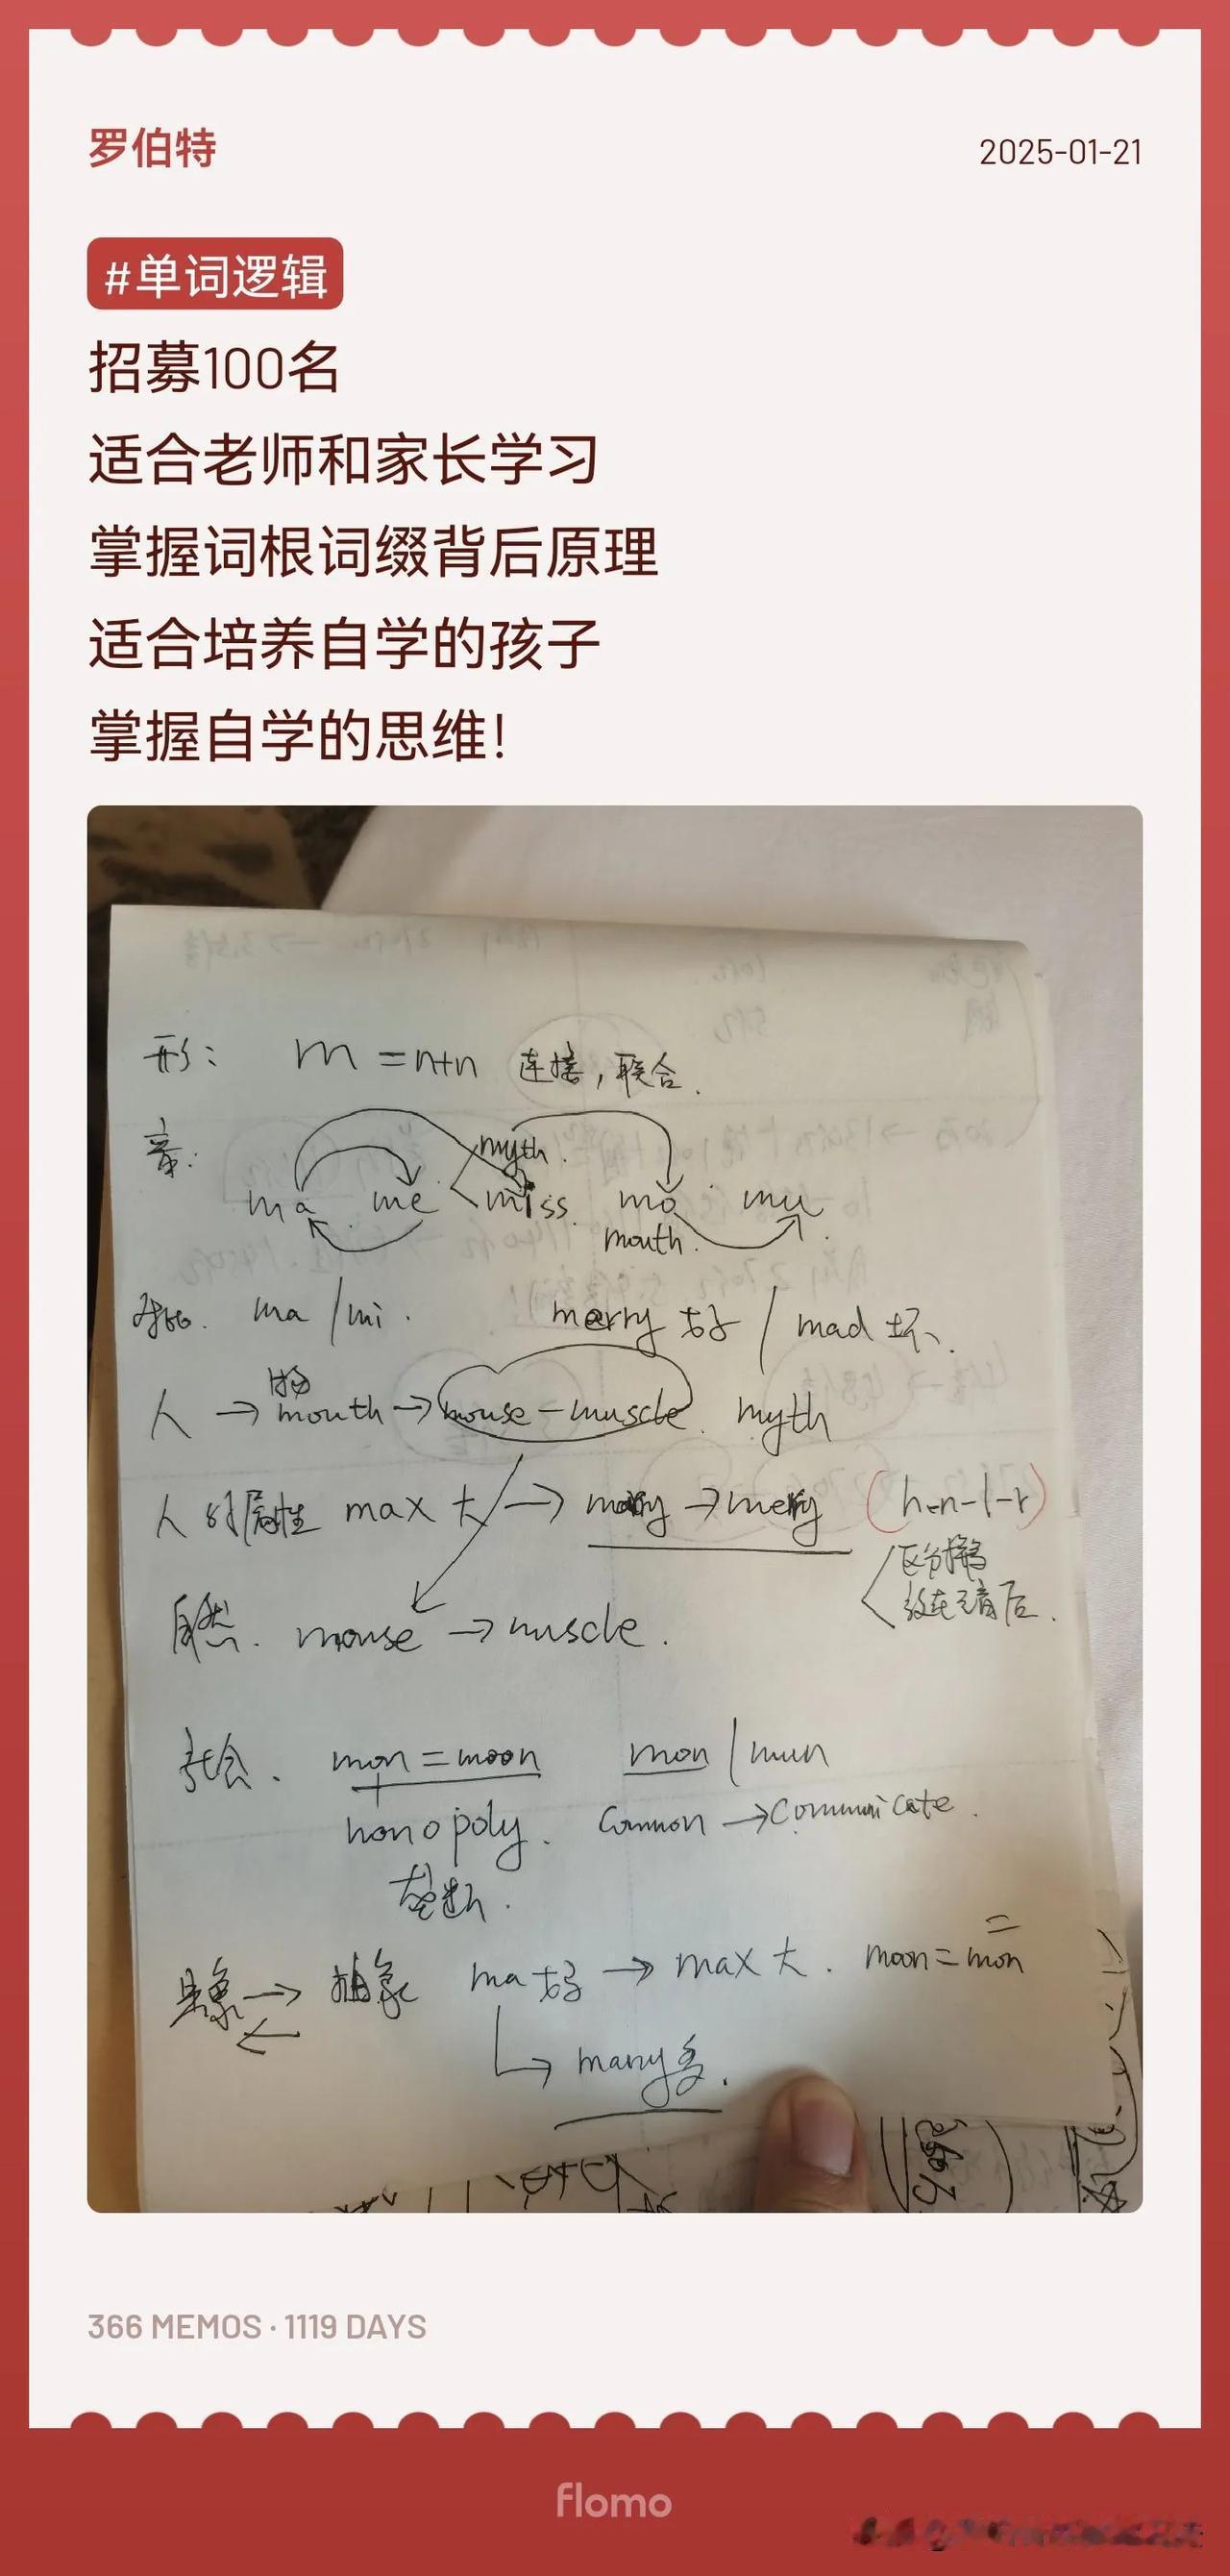 罗伯特
2025-01-21
#单词逻辑
招募100名
适合老师和家长学习
掌握词根词缀背后原理
适合培养自学的孩子
掌握自学的思维！
形： m = n+n 连接，联合.
音： myth.
ma me miss. mo mu
mouth.
对比. ma / mi. merry 好 / mad 坏.
人 → mouth → mouse - muscle. myth
人的属性 max 大 → → merry (h-n-l-r)
区分
放在元音后.
自然. mouse → muscle.
社会. mon = moon mon / mun
monopoly. Common → Communicate.
垄断.
具象 → 抽象 ma 好 → max 大. moon = mon
← 
→ many 多.
366 MEMOS · 1119 DAYS
flomo